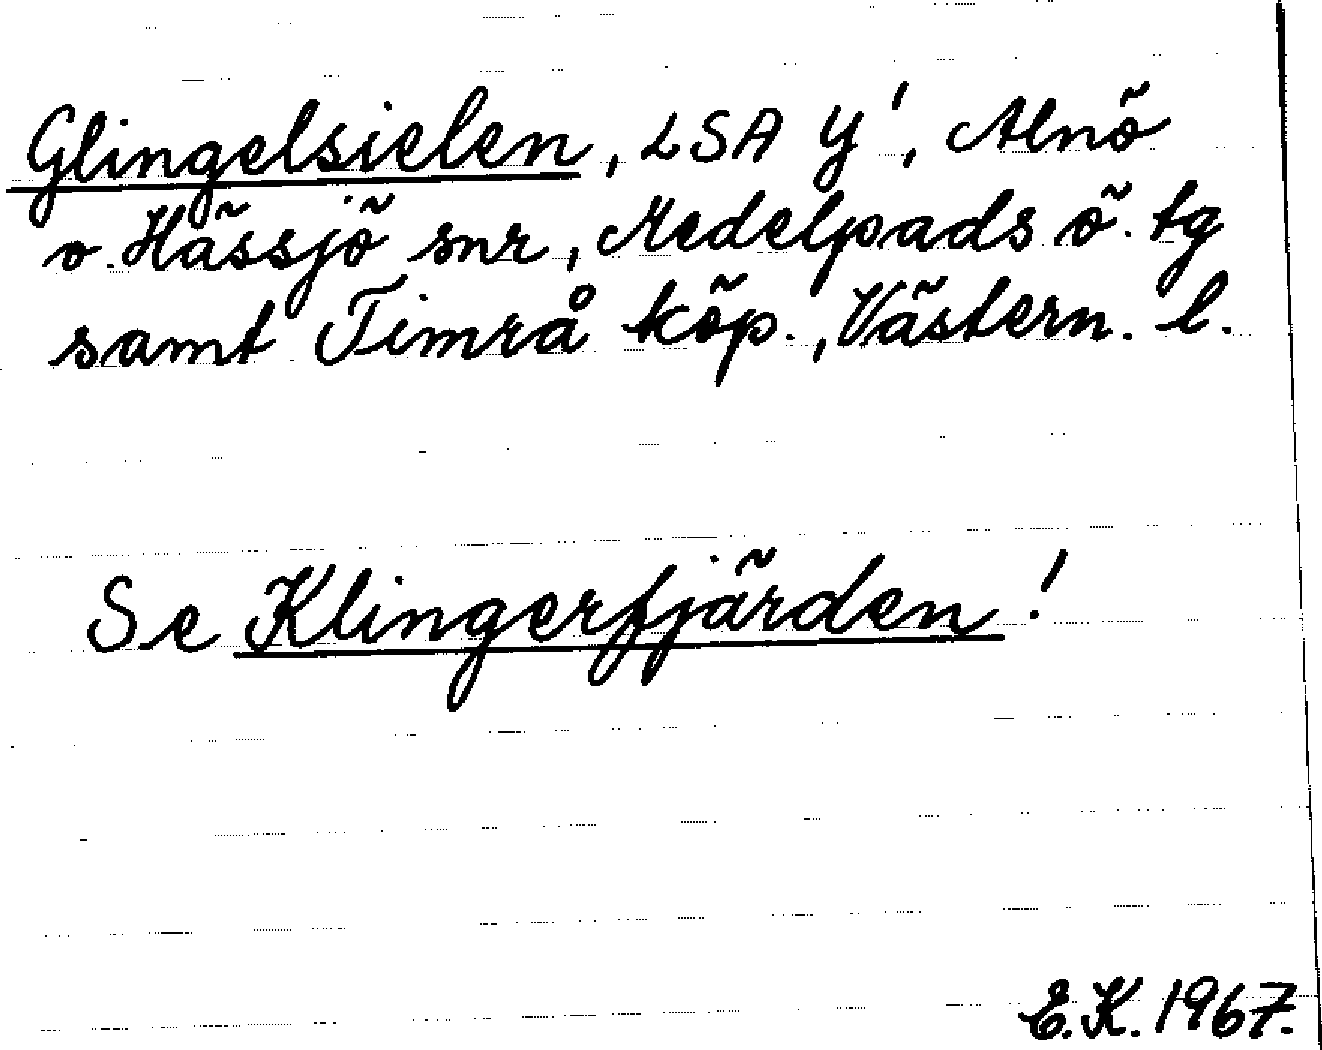 Glingelsielen, LSA Y', Alnö
o. Hässjö snr, Medelpads ö. tg
samt Timrå köp., Västern. l.
Se Klingerfjärden!
E.K. 1967.